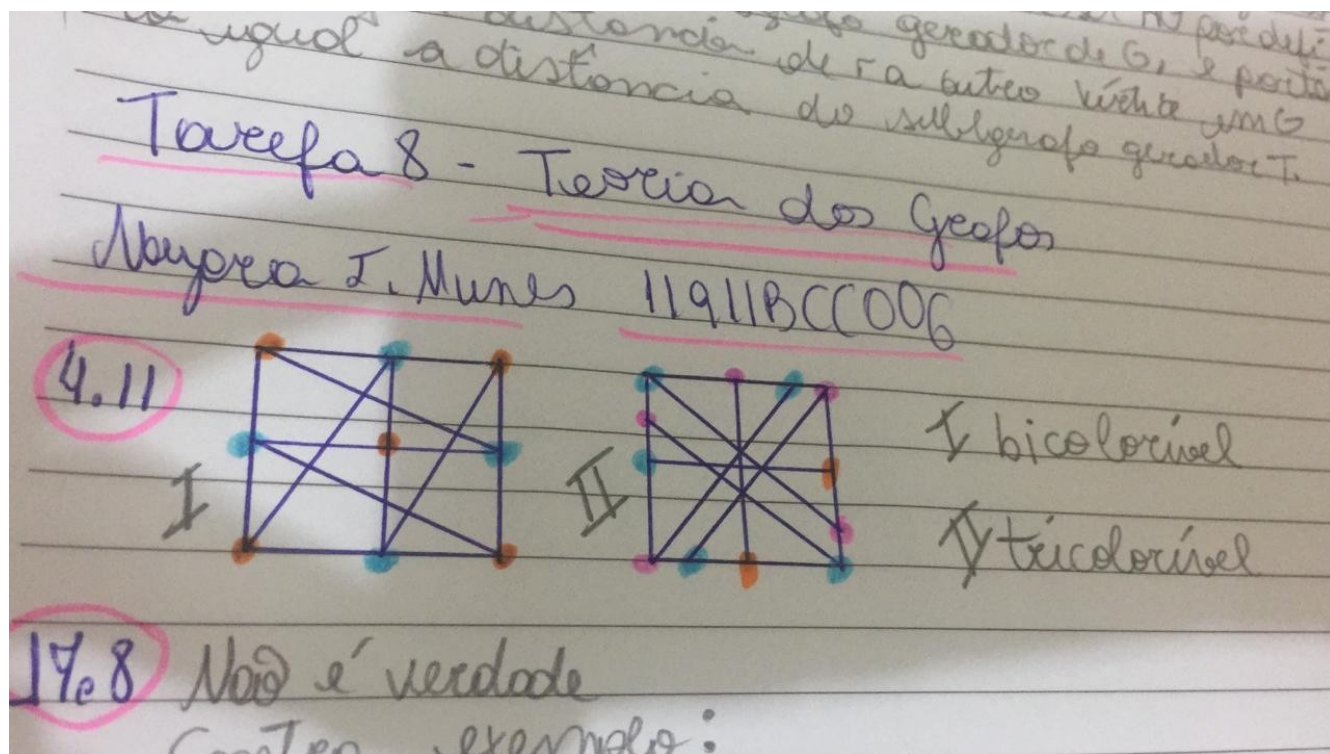 distancia gerador de G, e portã
igual a distancia de r a outro vértice em G
distancia do subgrafo gerador T.
Tarefa 8 - Teoria dos Grafos
Nayara T. Nunes 11911BCC006
4.11
I
II
I bicolorível
II tricolorível
17.8 Não é verdade
Contra exemplo: